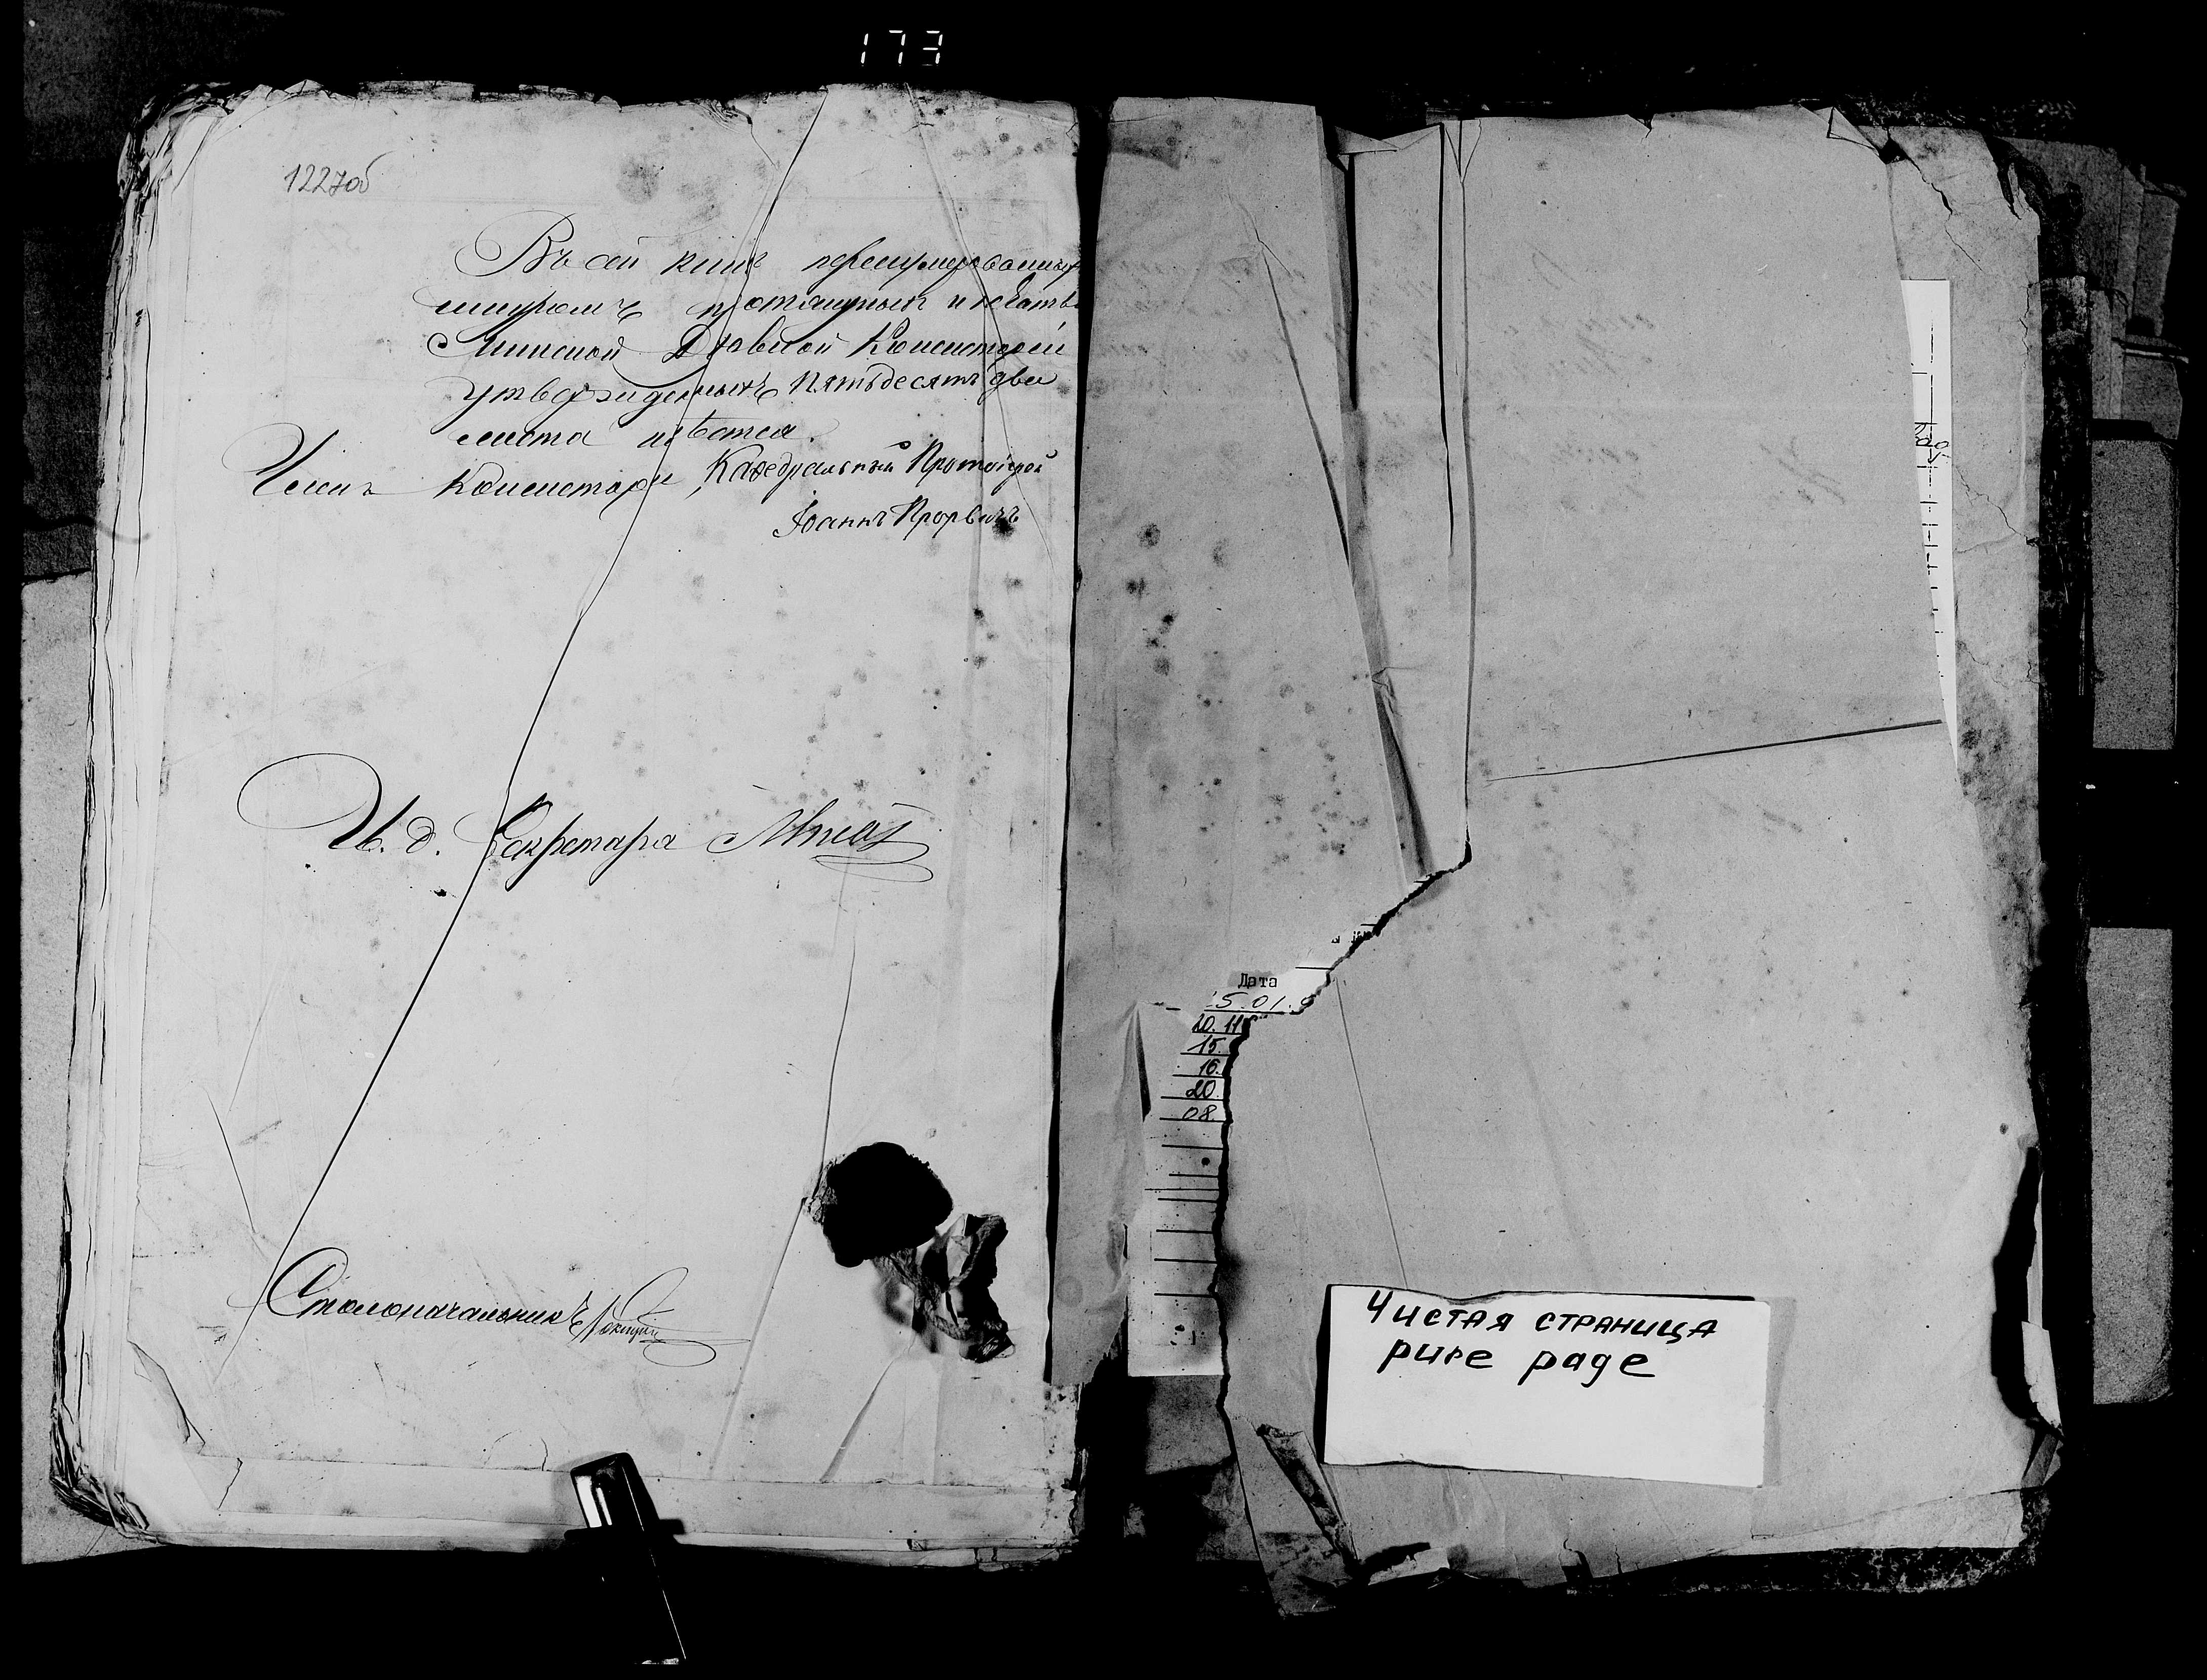 173
1227об
Въ сей книгѣ перенумерованныхъ
шнуромъ протянутыхъ и печатью
Минской Духовной Консисторіи
утвержденныхъ пятьдесятъ два
листа имѣется.
Членъ Консисторіи, Кафедральный Протоіерей
Іоаннъ Прорвичъ
И. д. Секретаря
Столоначальникъ
Дата
5.01.9
20.11
15.
16.
20.
08.
Чистая страница
pure page